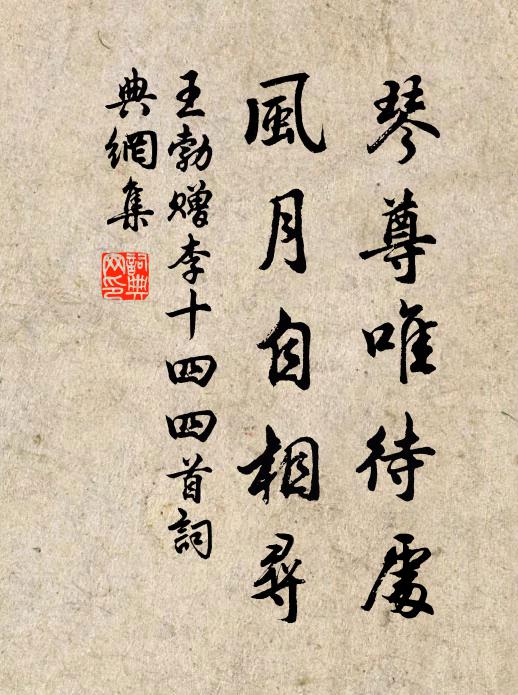 琴尊唯待處
風月自相尋
王勃贈李十四四首詞
典網集
詞典網印